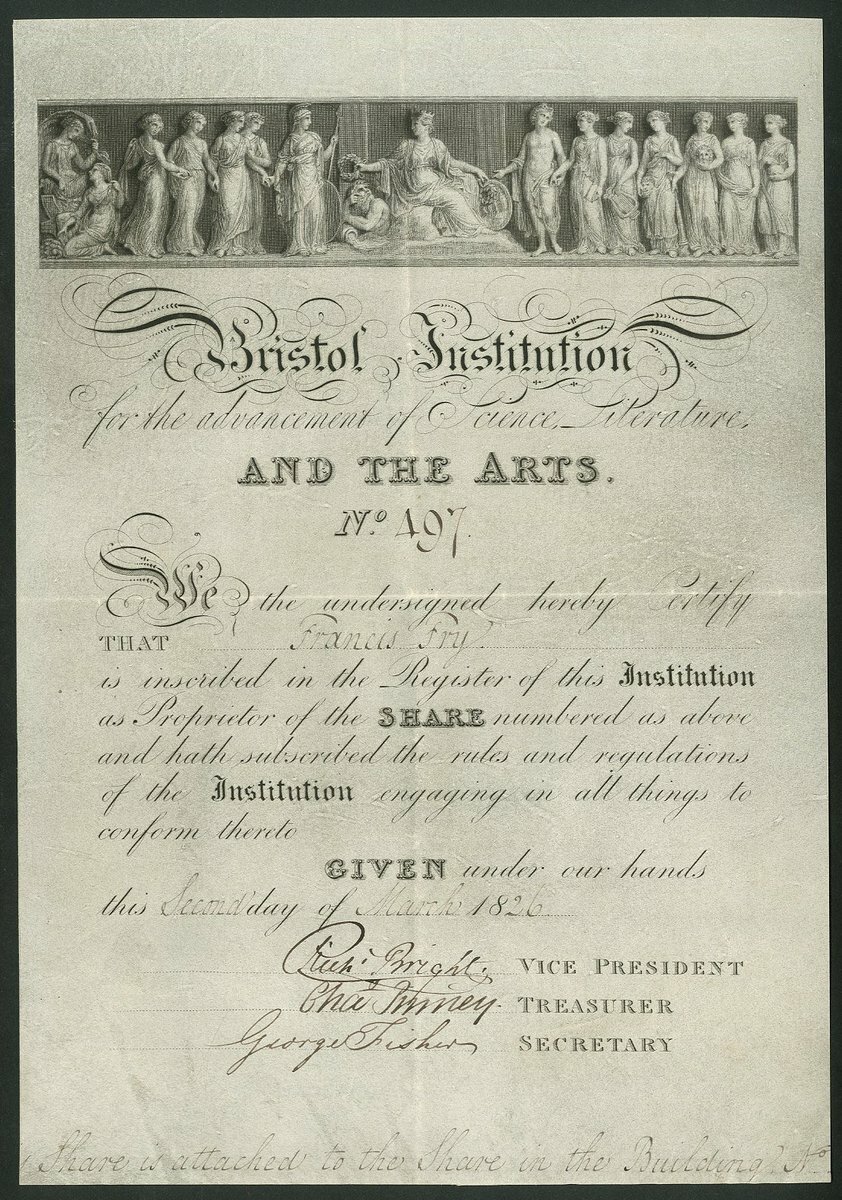 Bristol Institution
for the advancement of Science, Literature,
AND THE ARTS.
No. 497.
We the undersigned hereby Certify
THAT Francis Fry
is inscribed in the Register of this Institution
as Proprietor of the SHARE numbered as above
and hath subscribed the rules and regulations
of the Institution engaging in all things to
conform thereto
GIVEN under our hands
this Second day of March 1826
Richd. Bright. VICE PRESIDENT
Chas. TREASURER
George Fisher SECRETARY
Share is attached to the Share in the Building No.